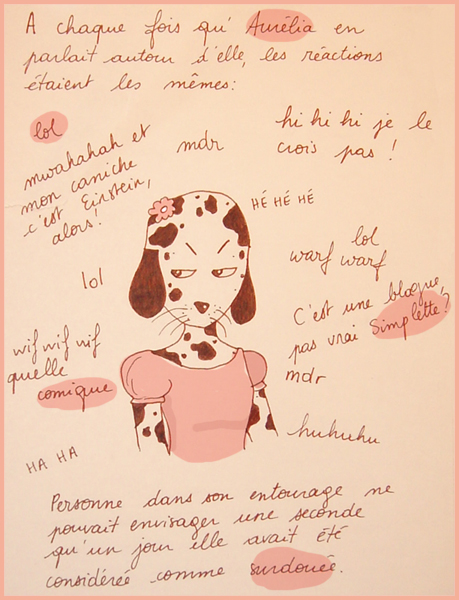 A chaque fois qu'Aurélia en
parlait autour d'elle, les réactions
étaient les mêmes:
lol
mwahahah et
mon caniche
c'est Einstein,
alors!
mdr
hi hi hi je le
crois pas !
HÉ HÉ HÉ
lol
warf warf
lol
C'est une blague,
pas vrai Simplette?
mdr
wif wif wif
quelle
comique
huhuhu
HA HA
Personne dans son entourage ne
pouvait envisager une seconde
qu'un jour elle avait été
considérée comme surdouée.